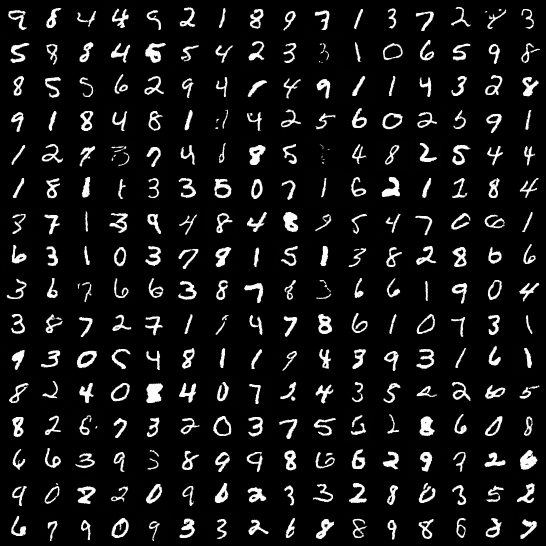 9 8 4 4 9 2 1 8 9 7 1 3 7 2 3
5 8 8 4 6 5 4 2 3 3 1 0 6 5 9 8
8 5 5 6 2 9 4 1 4 9 1 1 4 3 2 8
9 1 8 4 8 1 4 2 5 6 0 2 5 9 1
1 2 7 3 7 4 1 8 5 4 8 2 5 4 4
1 8 1 1 3 3 5 0 7 1 6 2 1 1 8 4
3 7 1 3 9 4 8 4 8 9 5 4 7 0 0 1
6 3 1 0 3 7 9 1 5 1 3 8 2 8 6 6
3 6 7 6 6 3 8 7 8 3 6 6 1 9 0 4
3 8 7 2 7 1 9 4 7 8 6 1 0 7 3 1
9 3 0 5 4 8 1 1 9 8 3 9 3 1 6 1
8 2 4 0 8 4 0 7 2 4 3 5 2 2 6 5
8 2 6 7 3 2 0 3 7 5 5 2 8 6 0 8
6 6 3 9 3 8 9 9 8 6 6 2 9 7 2 6
9 0 8 2 0 9 6 2 3 3 2 8 0 3 5 2
6 7 9 0 9 3 3 2 6 8 8 9 8 6 8 7